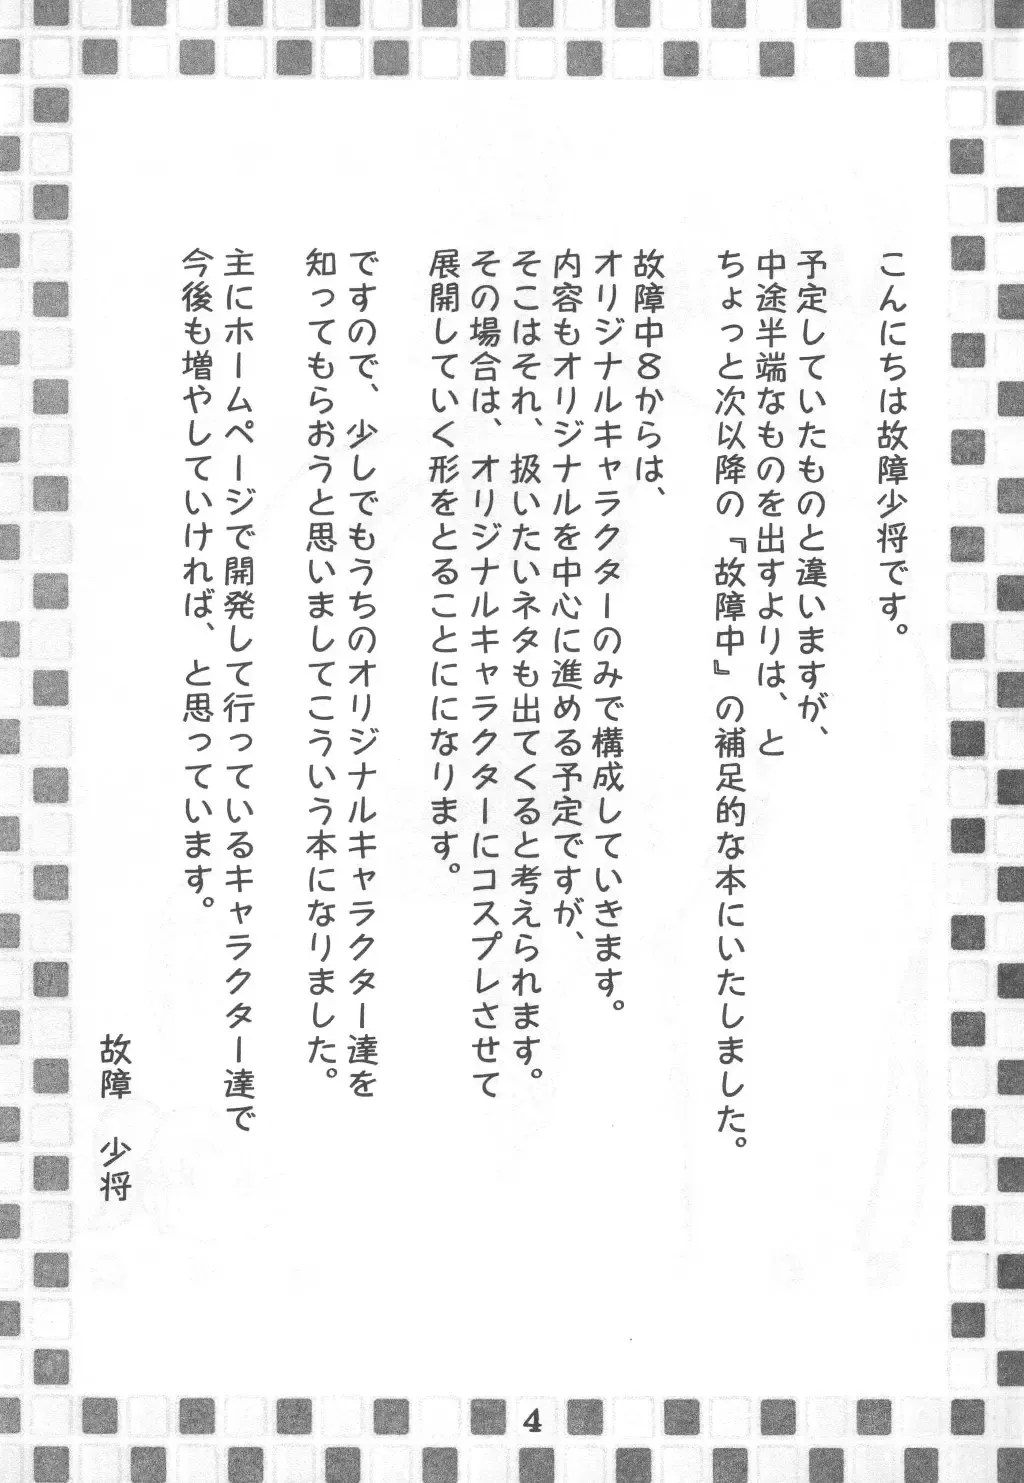 こんにちは故障少将です。
予定していたものと違いますが、
中途半端なものを出すよりは、と
ちょっと次以降の『故障中』の補足的な本にいたしました。
故障中８からは、
オリジナルキャラクターのみで構成していきます。
内容もオリジナルを中心に進める予定ですが、
そこはそれ、扱いたいネタも出てくると考えられます。
その場合は、オリジナルキャラクターにコスプレさせて
展開していく形をとることにになります。
ですので、少しでもうちのオリジナルキャラクター達を
知ってもらおうと思いましてこういう本になりました。
主にホームページで開発して行っているキャラクター達で
今後も増やしていければ、と思っています。
故障　少将
4